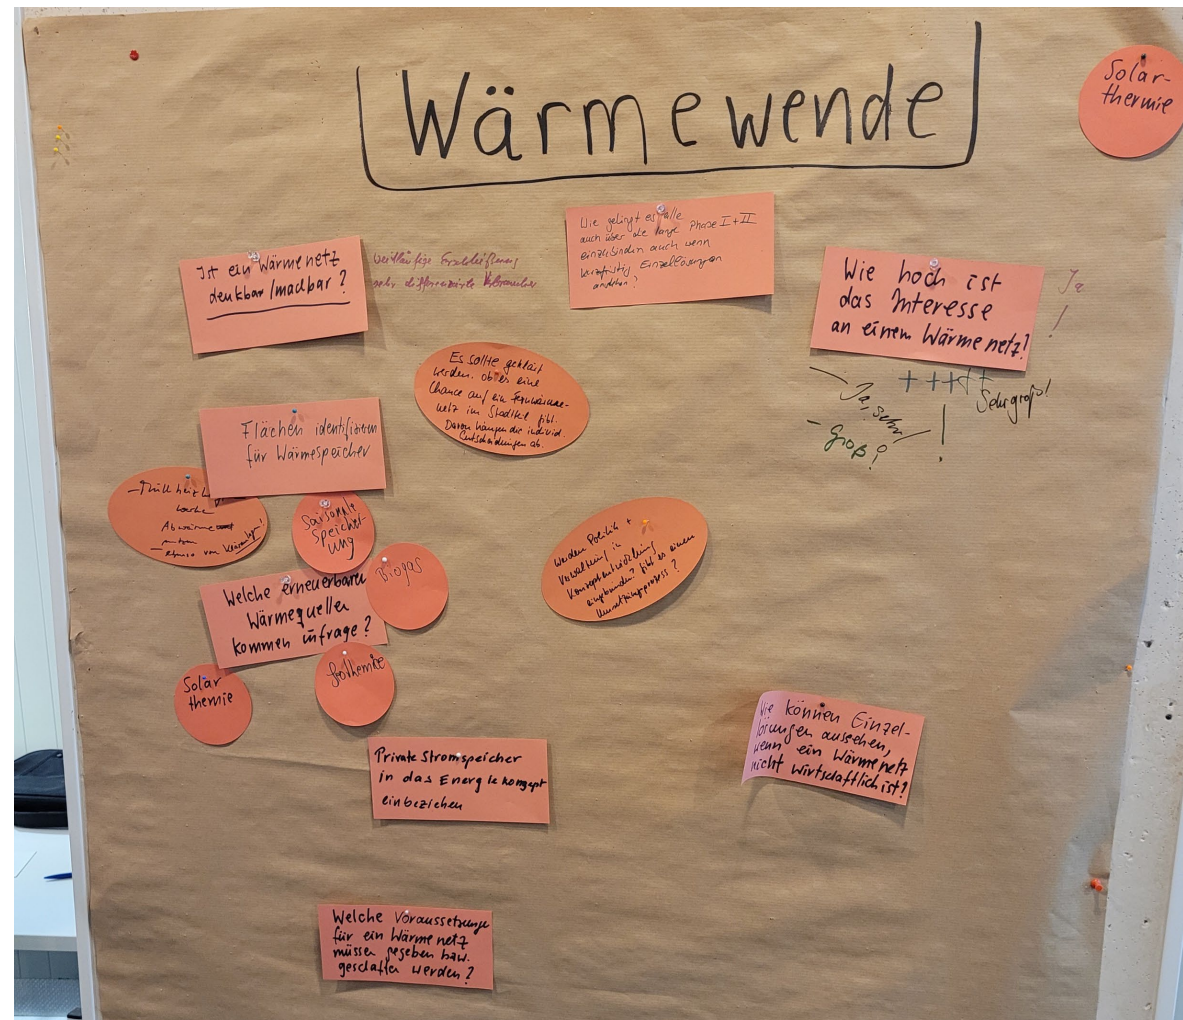 Wärmewende
Solar-
thermie
Ist ein Wärmenetz
denkbar/machbar?
weitläufige Erschließung
sehr differenzierte Verbraucher
Wie gelingt es alle
auch über die lange Phase I+II
einzubinden auch wenn
kurzfristig Einzellösungen
anstehen?
Wie hoch ist
das Interesse
an einem Wärmenetz?
Ja
!
+ + + + +
– Ja, sehr!
Sehr groß!
– Groß!
!
Es sollte geklärt
werden, ob es eine
Chance auf ein Fernwärme-
netz im Stadtteil gibt.
Davon hängen die individ.
Entscheidungen ab.
Flächen identifizieren
für Wärmespeicher
Abwärme
nutzen
Saisonale
Speicher-
ung
Biogas
Welche erneuerbaren
Wärmequellen
kommen infrage?
Solar
thermie
Geothermie
Werden Politik +
Verwaltung in
Konzeptentwicklung
eingebunden? Gibt es einen
Umsetzungsprozess?
Private Stromspeicher
in das Energiekonzept
einbeziehen
Wie können Einzel-
lösungen aussehen,
wenn ein Wärmenetz
nicht wirtschaftlich ist?
Welche Voraussetzunge
für ein Wärmenetz
müssen gegeben bzw.
geschaffen werden?